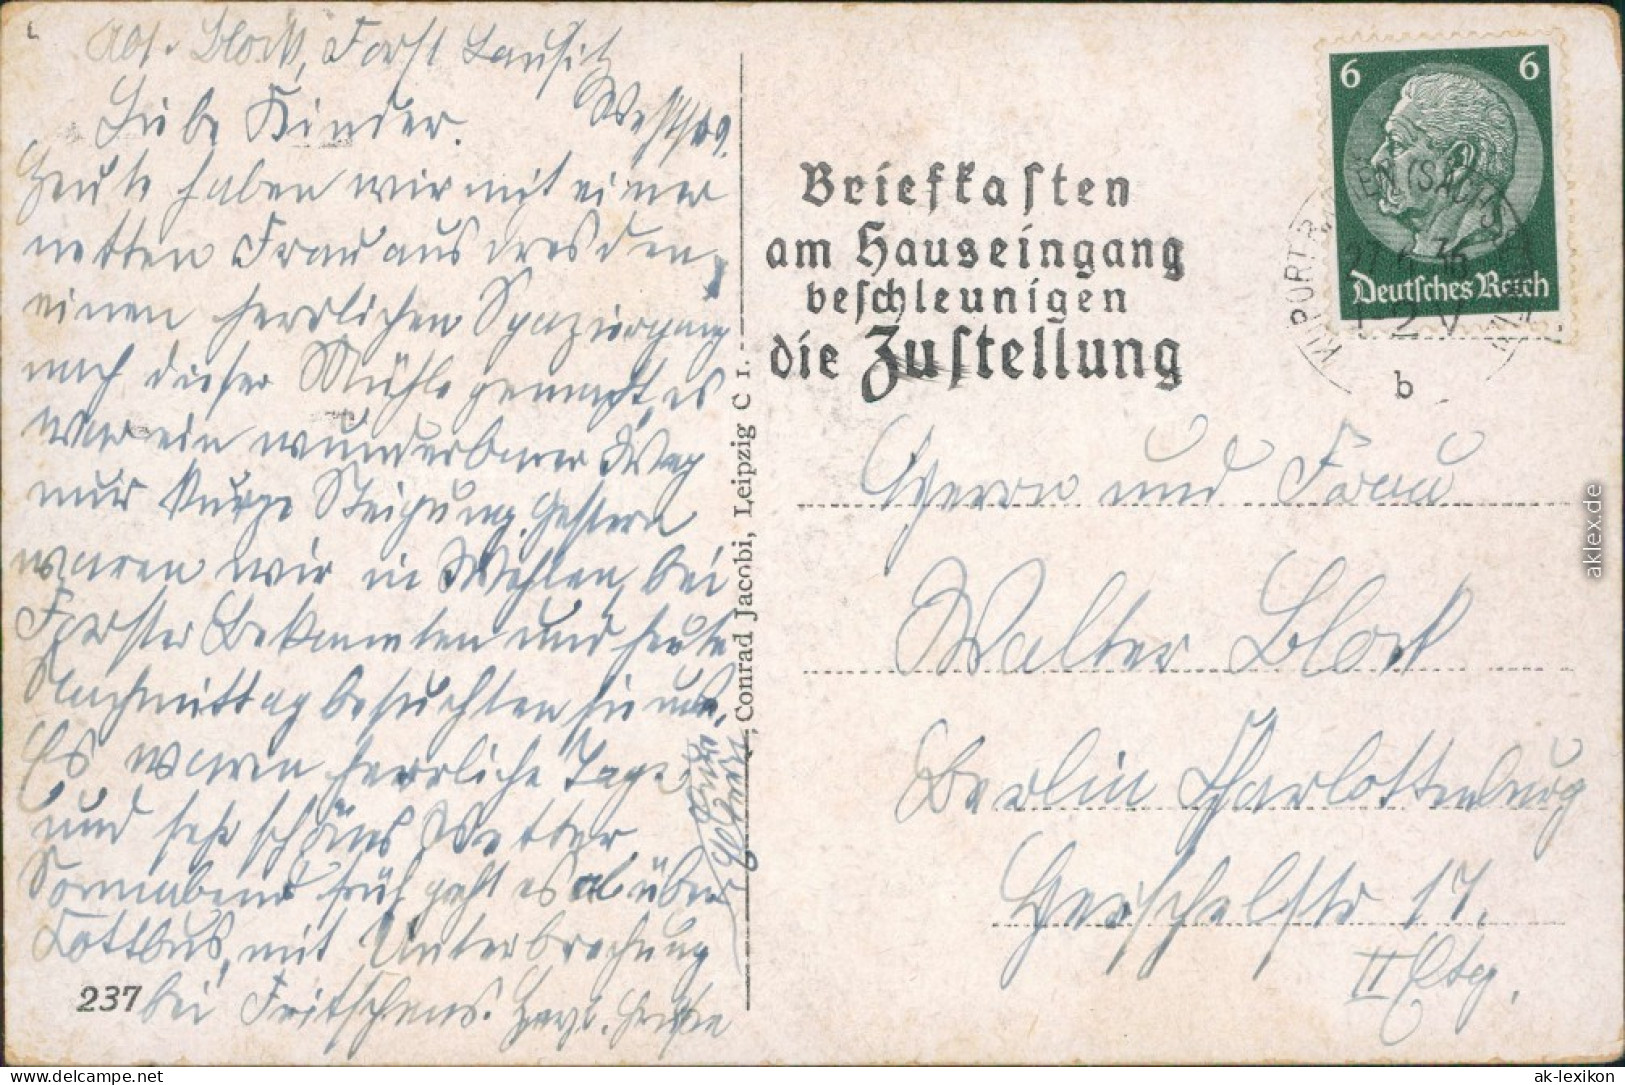 Abs. Block, Forst Lausitz
Liebe Kinder.
Heute haben wir mit einer
netten Frau aus Dresden,
einen herrlichen Spaziergang
nach dieser Mühle gemacht, es
war ein wunderbarer Weg
nur kurze Steigung. Gestern
waren wir in Wehlen, bei
Forster Bekannten und heute
Nachmittag besuchten sie uns.
Es waren herrliche Tage
und sehr schönes Wetter
Sonnabend früh geht es ab über
Cottbus, mit Unterbrechung
bei Fritschens. Herzl. Grüße
237
, Conrad Jacobi, Leipzig C 1.
Briefkasten
am Hauseingang
beschleunigen
die Zustellung
6 6
Deutsches Reich
b
Herrn und Frau
Walter Block
Berlin Charlottenburg
Herschelstr 17.
II Etg.
aklex.de
delcampe.net
ak-lexikon